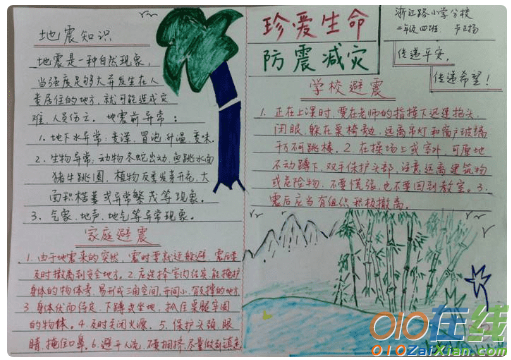 地震知识
地震是一种自然现象,
当强度足够大并发生在人
类居住的地方,就可能造成灾
难、人员伤亡。地震前异常:
1. 地下水异常,变浑,冒泡,升温,变味。
2. 生物异常,动物不吃乱动,鱼跳水面
猪牛跳圈。植物反季发青开花,大
面积枯萎或异常繁茂等现象。
3. 气象、地声、地气等异常现象。
家庭避震
1. 由于地震来的突然,震时要就近躲避,震后
及时撤离到安全地方。2. 应选择室内
3. 身体
的物体。4. 及时关闭火源。5. 保护头颈、眼
睛,掩住口鼻。6. 避开人流,
珍爱生命
防震减灾
浙江路小学分校
传递平安,
传递希望!
学校避震
1. 正在上课时,要在老师的指挥下迅速抱头、
闭眼、躲在桌椅边,远离吊灯和窗户玻璃
千万别跳楼。2. 在操场上或室外,可原地
不动蹲下,双手保护头部,注意远离建筑物
或危险物,不要慌张,也不要回到教室。3.
震后应当有组织积极撤离。
010在线
010zaixian.com